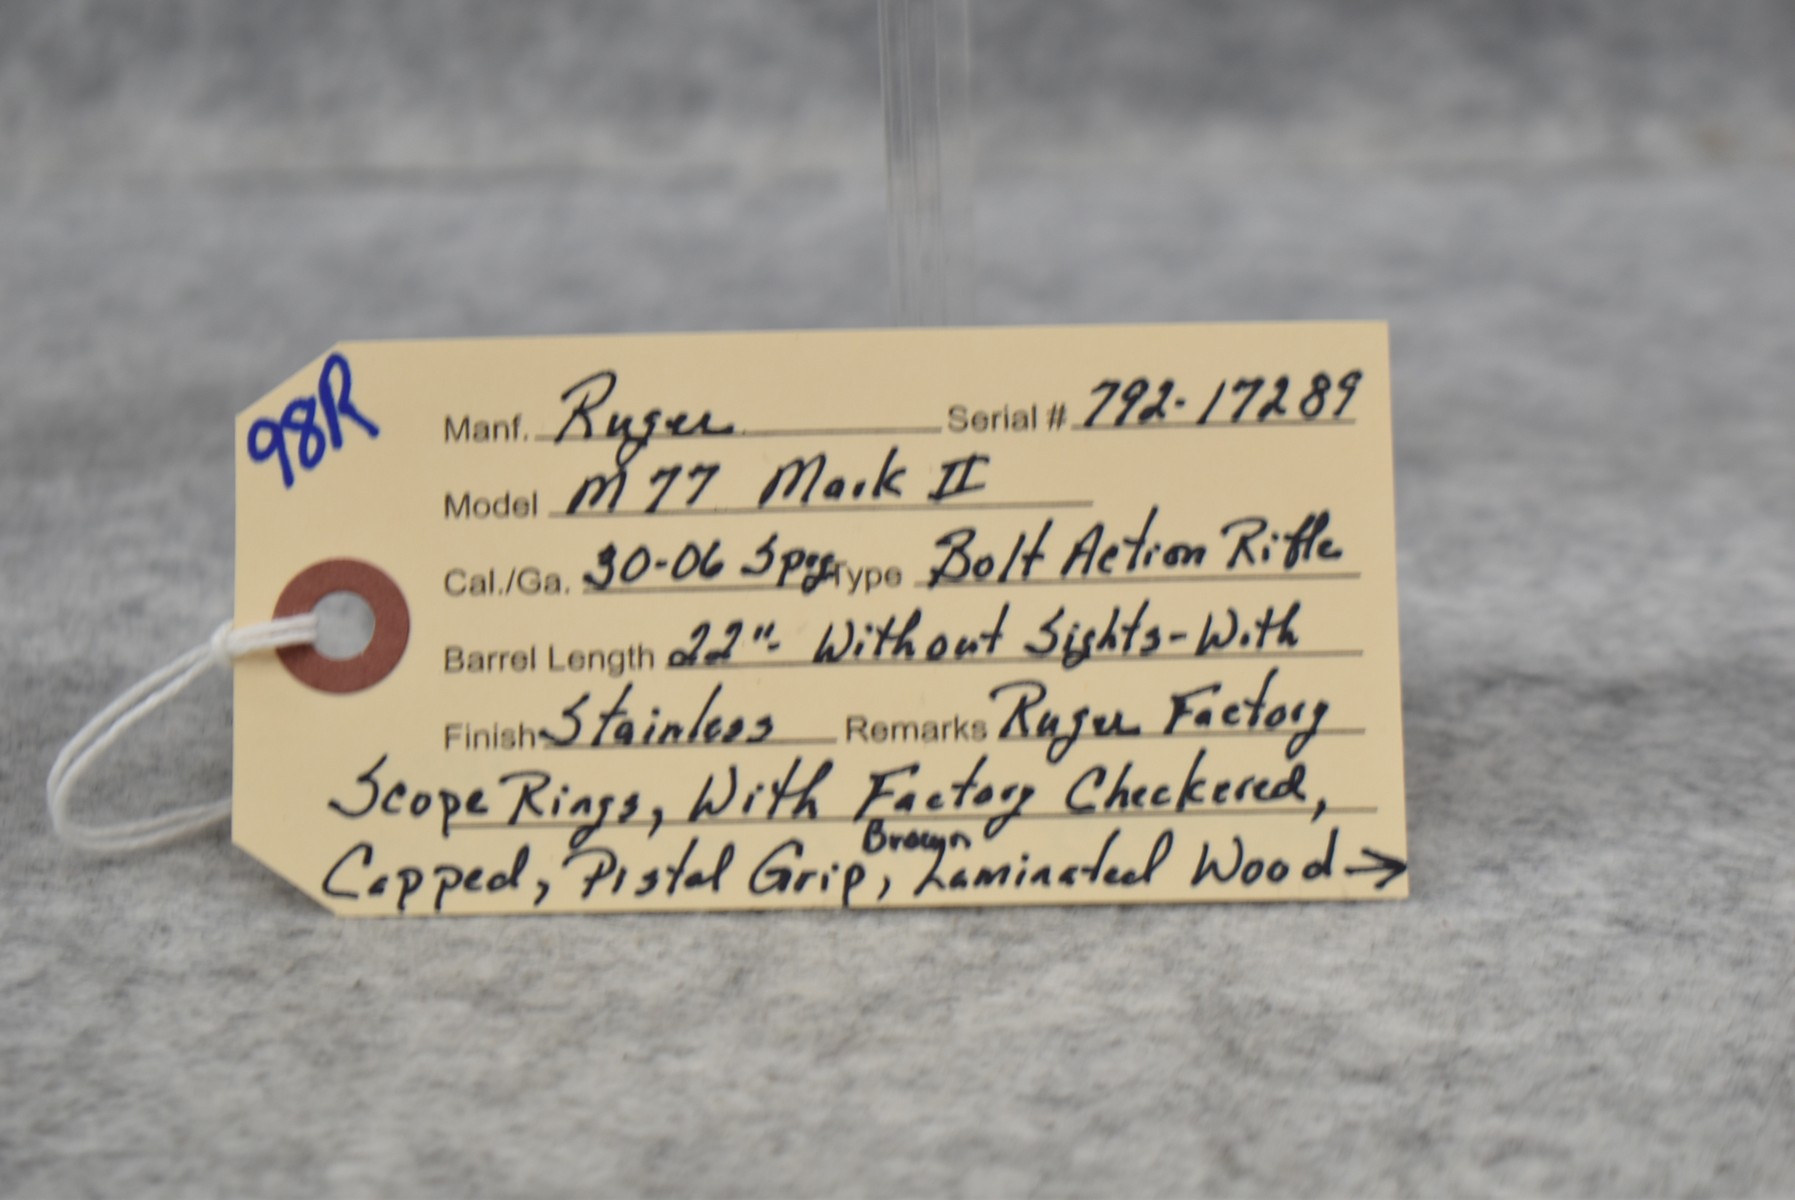 98R
Manf. Ruger Serial # 792-17289
Model M77 Mark II
Cal./Ga. 30-06 Spg Type Bolt Action Rifle
Barrel Length 22"- Without Sights-With
Finish Stainless Remarks Ruger Factory
Scope Rings, With Factory Checkered,
Brown
Capped, Pistol Grip, Laminated Wood →